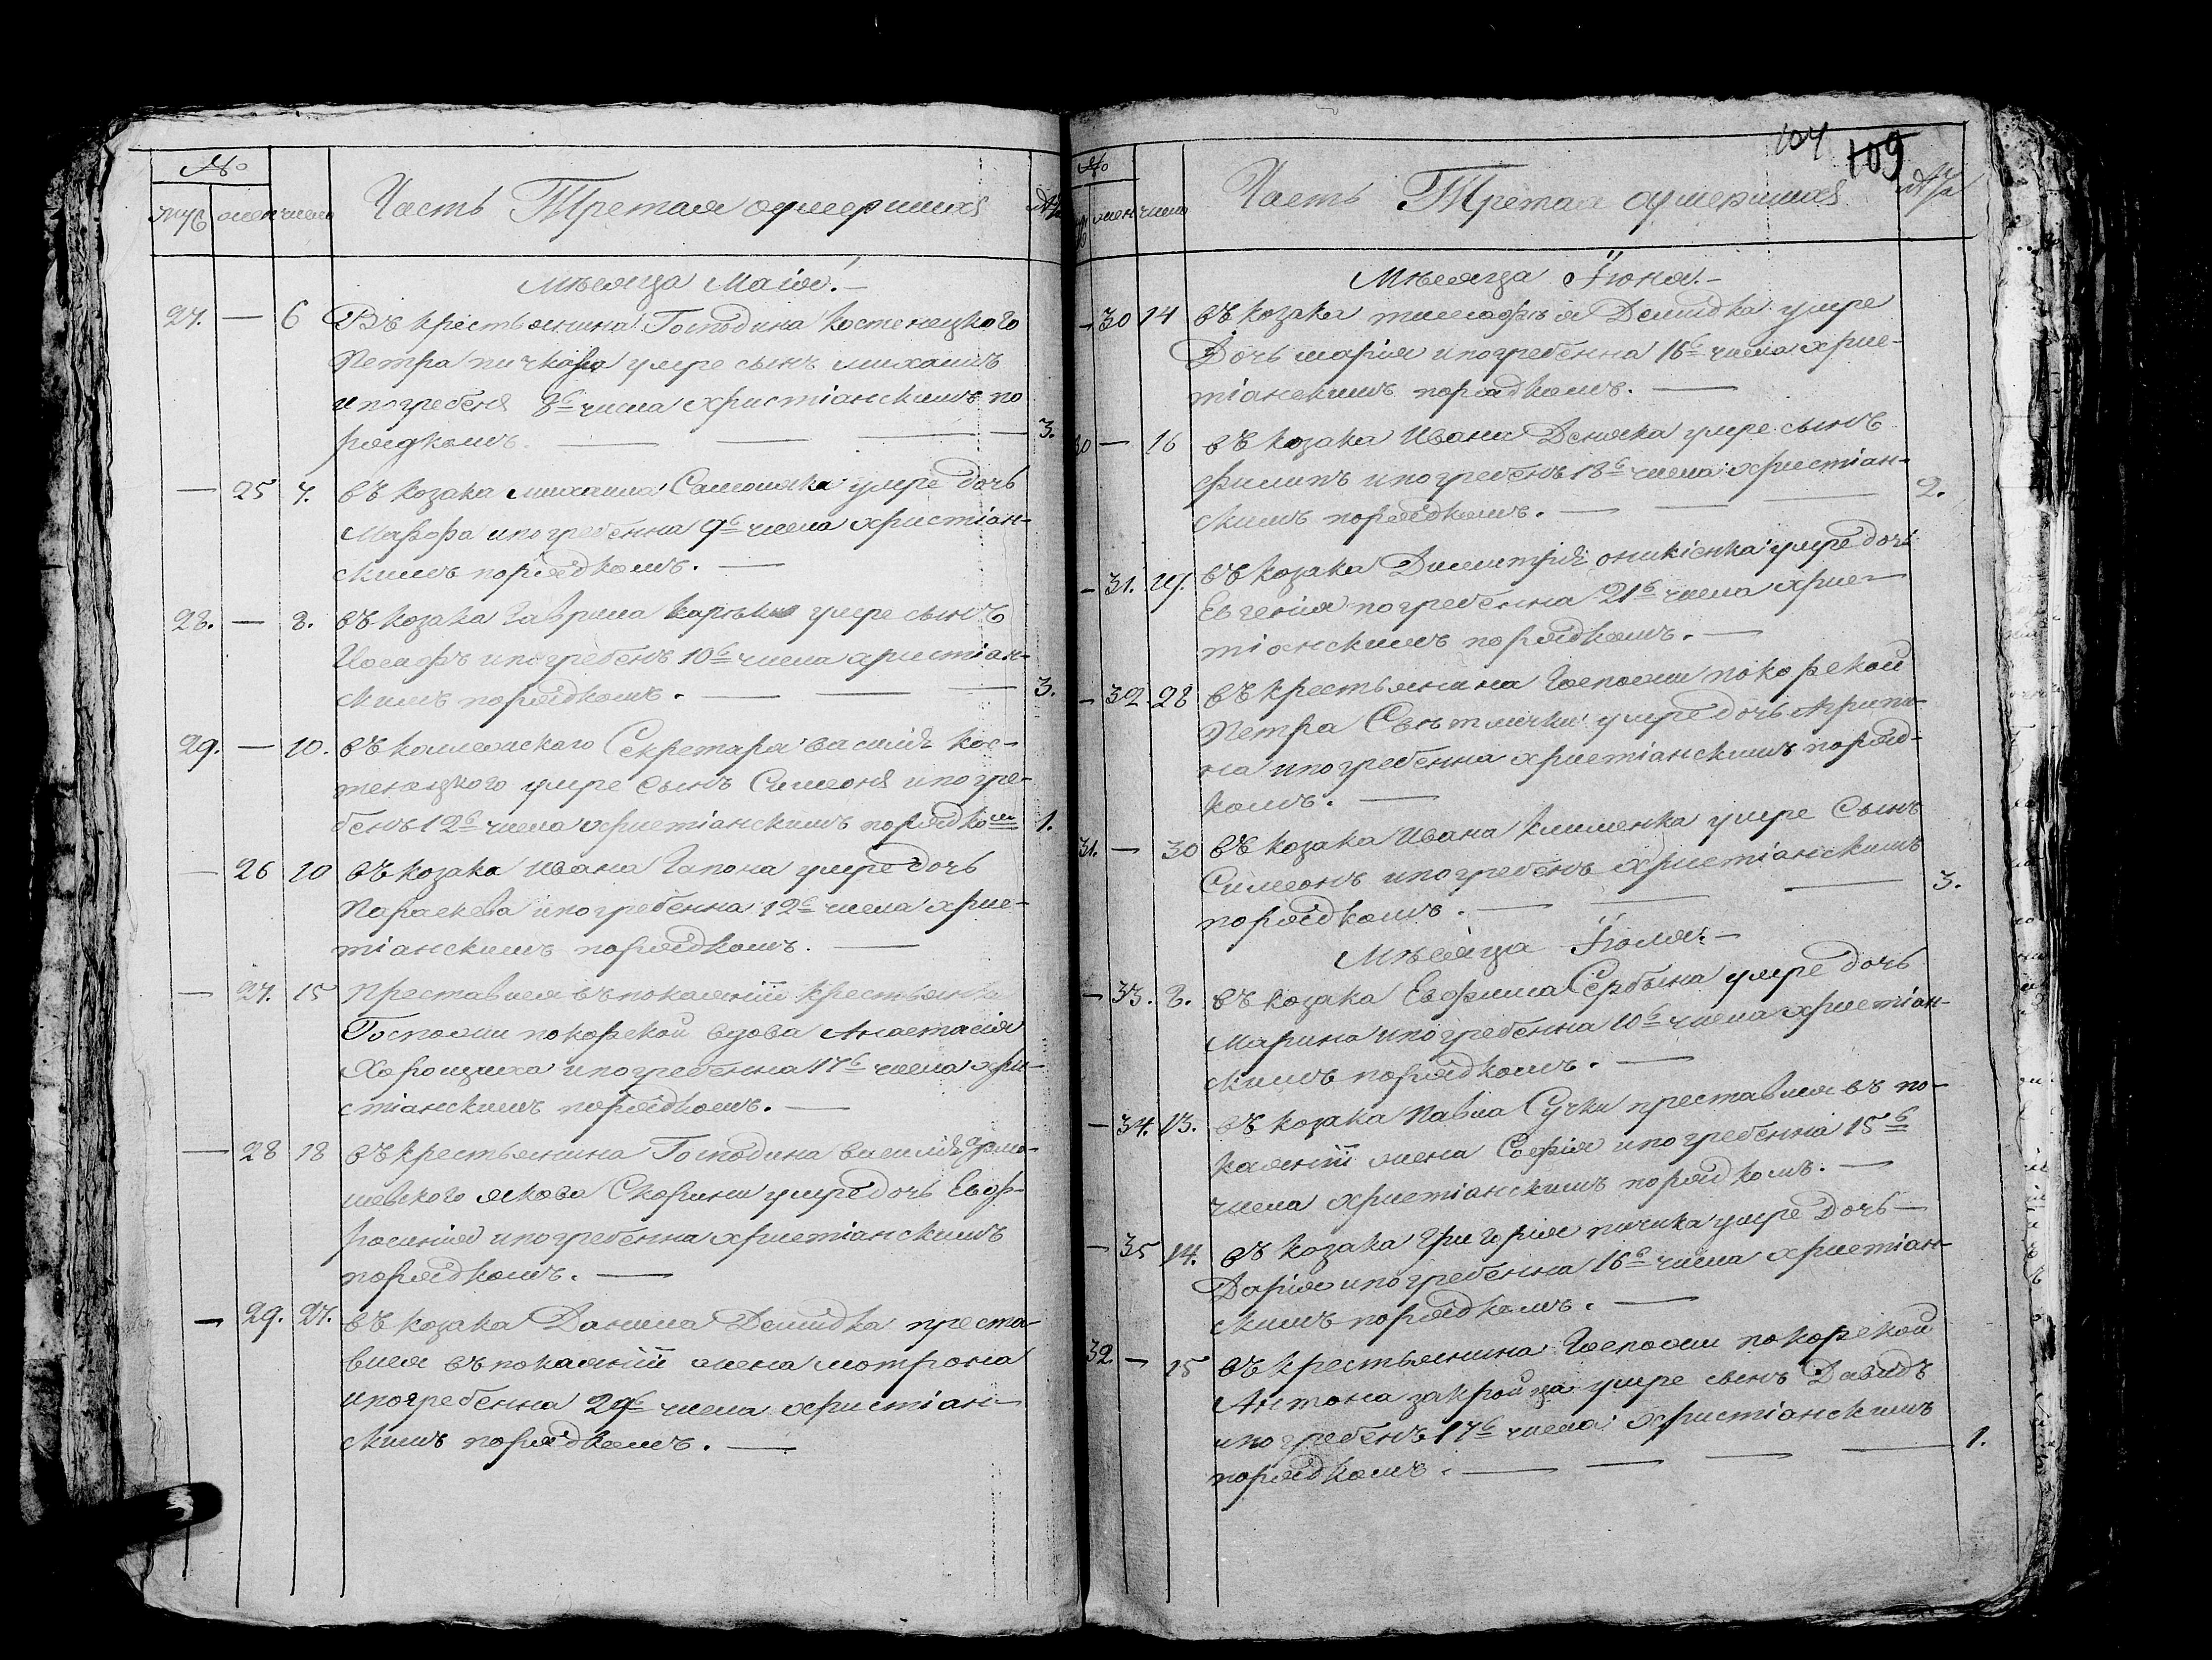 №
муж
женъ
число
Часть Третая оумершихъ
Мѣсяца Маія.
27. — 6 Въ крестьянина Господина Костенецкого
Петра умре сынъ михаилъ
и погребенъ 8г числа христіанскимъ по
рядкомъ. — — — 3.
— 25 7. въ козака михаила умре дочь
Марфа и погребенна 9г числа христіан-
скимъ порядкомъ. —
28. — 8. въ козака Гаврила умре сынъ
Иоасафъ и погребенъ 10г числа христіан-
скимъ порядкомъ. — — — 3.
29. — 10. въ коллежского Секретара василія Кос-
тенецкого умре сынъ Симеонъ и погре-
бенъ 12г числа христіанскимъ порядкомъ 1.
— 26 10 въ козака Ивана Гапона умре дочь
Параскева и погребенна 12г числа хрис-
тіанскимъ порядкомъ. —
— 27. 15 преставися въ покаяніи крестьянка
Госпожи покорской вдова Анастасія
Хорощиха и погребенна 17г числа хри-
стіанскимъ порядкомъ. —
— 28 18 въ крестьянина Господина василія
якова Скорини умре дочь Евф-
росинія и погребенна христіанскимъ
порядкомъ. —
— 29. 27. въ козака Данила Демидка преста-
вися въ покаяніи жена мотрона
и погребенна 29г числа христіан-
скимъ порядкомъ. —
104
109
№
женъ
число
Часть Третая оумершихъ
Мѣсяца Іюня. —
— 30 14 въ козака тимофѣя Демидка умре
Дочь марія и погребенна 16г числа хрис-
тіанскимъ порядкомъ. —
30 — 16 въ козака Ивана Деняка умре сынъ
филипъ и погребенъ 18г числа христіан-
скимъ порядкомъ. — — — 2.
— 31. 19. въ козака Димитрія оникіенка умре дочь
Евгенія погребенна 21г числа хрис-
тіанскимъ порядкомъ. —
— 32 28 въ крестьянина Госпожи покорской
Петра Свѣтлички умре дочь Агрипи-
на и погребенна христіанскимъ поряд-
комъ. —
31. — 30 въ козака Ивана Клименка умре Сынъ
Симеонъ и погребенъ христіанскимъ
порядкомъ. — — — 3.
Мѣсяца Іюля. —
— 33. 8. въ козака Евфима Сербына умре дочь
Марина и погребенна 10г числа христіан-
скимъ порядкомъ. —
— 34. 13. въ козака Павла Сучки преставися въ по-
каяніи жена Софія и погребенна 15г
числа христіанскимъ порядкомъ. —
— 35 14. въ козака Григорія пичика умре Дочь —
Дарія и погребенна 16г числа христіан-
скимъ порядкомъ. —
32 — 15 въ крестьянина Госпожи покорской
Антона закройца умре сынъ Давидъ
и погребенъ 17г числа христіанскимъ
порядкомъ. — — — — 1.